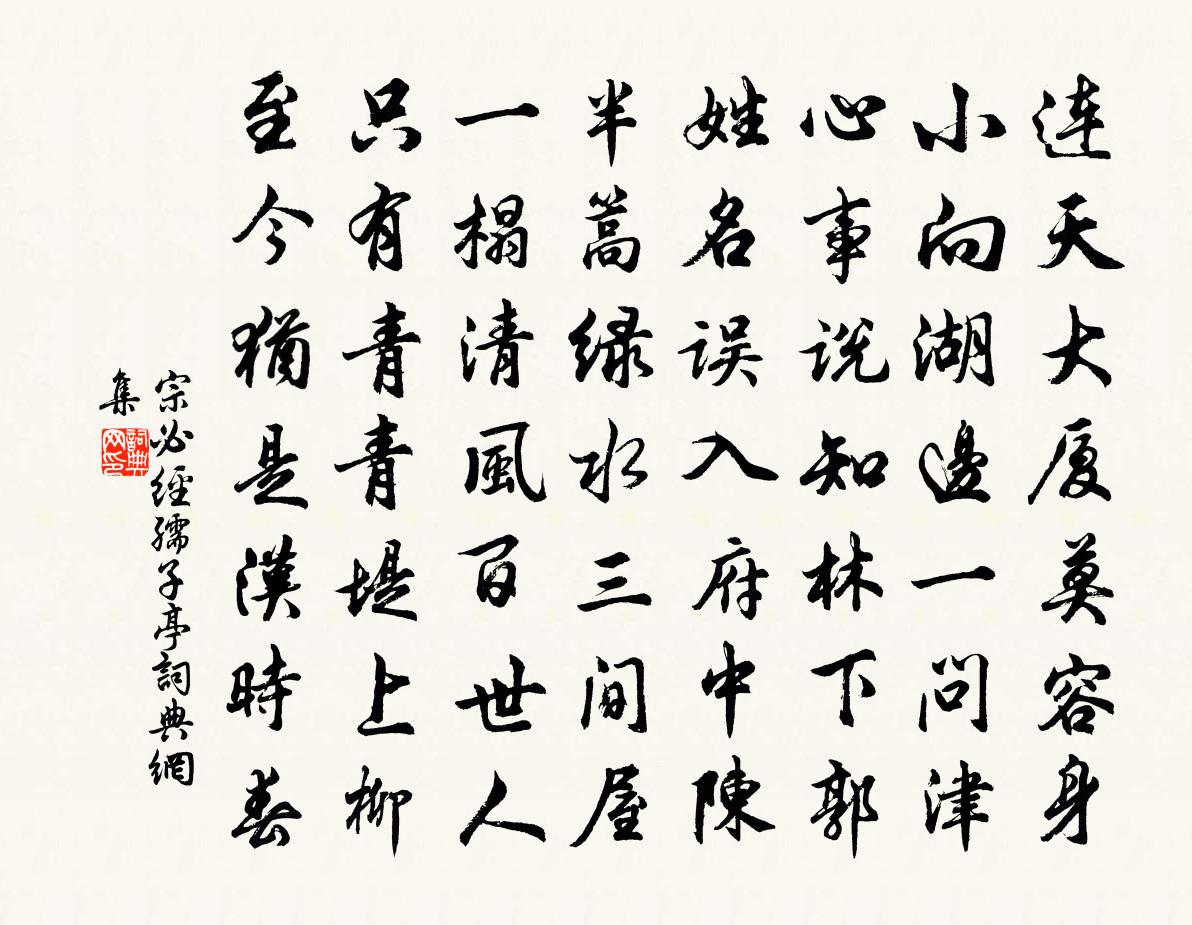 连天大厦莫容身
小向湖邊一问津
心事说知林下郭
姓名误入府中陳
半蒿绿水三间屋
一榻清風百世人
只有青青堤上柳
至今猶是漢時春
宗必經孺子亭詞典網
集
詞典网印